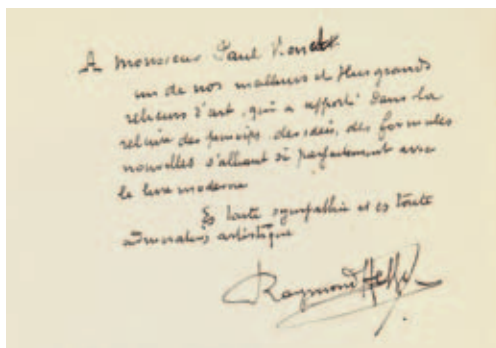 A Monsieur Paul Bonet
un de nos meilleurs et plus grands
relieurs d'art, qui a apporté dans la
reliure des principes, des idées, des formules
nouvelles s'alliant si parfaitement avec
le livre moderne
En toute sympathie et en toute
admiration artistique
Raymond